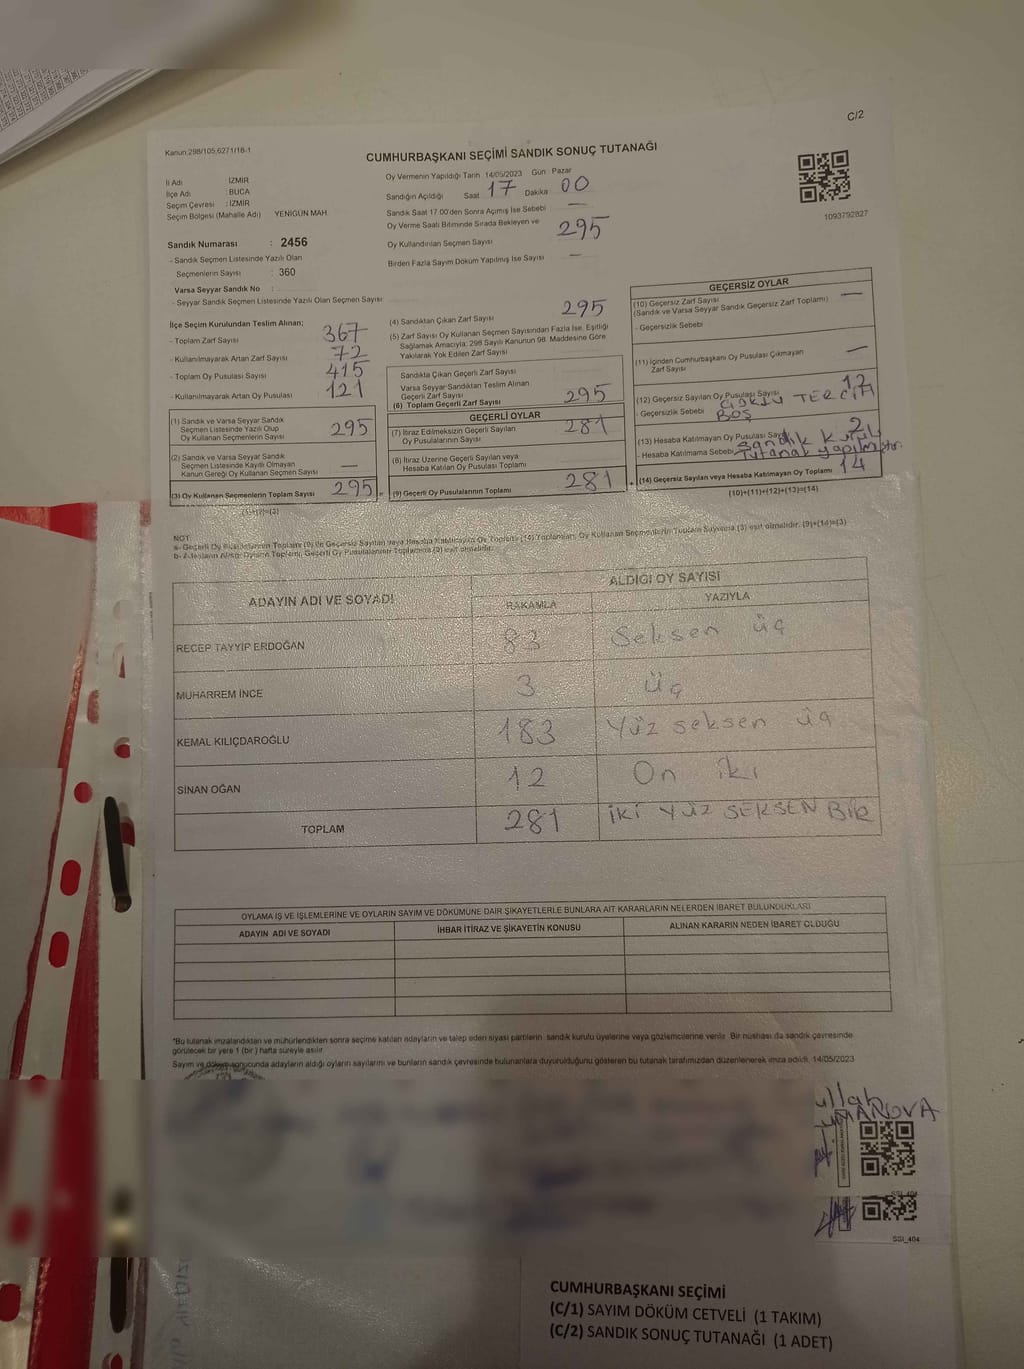 C/2
Kanun:298/105,6271/18-1
CUMHURBAŞKANI SEÇİMİ SANDIK SONUÇ TUTANAĞI
İl Adı : İZMİR
İlçe Adı : BUCA
Seçim Çevresi : İZMİR
Seçim Bölgesi (Mahalle Adı) YENİGÜN MAH.
Sandık Numarası : 2456
- Sandık Seçmen Listesinde Yazılı Olan
Seçmenlerin Sayısı : 360
Varsa Seyyar Sandık No :
- Seyyar Sandık Seçmen Listesinde Yazılı Olan Seçmen Sayısı
Oy Vermenin Yapıldığı Tarih 14/05/2023 Gün Pazar
Sandığın Açıldığı Saat 17 Dakika 00
Sandık Saat 17:00'den Sonra Açılmış İse Sebebi —
Oy Verme Saati Bitiminde Sırada Bekleyen ve
Oy Kullandırılan Seçmen Sayısı 295
Birden Fazla Sayım Döküm Yapılmış İse Sayısı —
1093792827
İlçe Seçim Kurulundan Teslim Alınan;
- Toplam Zarf Sayısı 367
- Kullanılmayarak Artan Zarf Sayısı 72
- Toplam Oy Pusulası Sayısı 415
- Kullanılmayarak Artan Oy Pusulası 121
(1) Sandık ve Varsa Seyyar Sandık
Seçmen Listesinde Yazılı Olup
Oy Kullanan Seçmenlerin Sayısı 295
(2) Sandık ve Varsa Seyyar Sandık
Seçmen Listesinde Kayıtlı Olmayan
Kanun Gereği Oy Kullanan Seçmen Sayısı —
(3) Oy Kullanan Seçmenlerin Toplam Sayısı 295
(1)+(2)=(3)
(4) Sandıktan Çıkan Zarf Sayısı 295
(5) Zarf Sayısı Oy Kullanan Seçmen Sayısından Fazla İse, Eşitliği
Sağlamak Amacıyla; 298 Sayılı Kanunun 98. Maddesine Göre
Yakılarak Yok Edilen Zarf Sayısı
Sandıkta Çıkan Geçerli Zarf Sayısı
Varsa Seyyar Sandıktan Teslim Alınan
Geçerli Zarf Sayısı
(6) Toplam Geçerli Zarf Sayısı 295
GEÇERLİ OYLAR
(7) İtiraz Edilmeksizin Geçerli Sayılan
Oy Pusulalarının Sayısı 281
(8) İtiraz Üzerine Geçerli Sayılan veya
Hesaba Katılan Oy Pusulası Toplamı
(9) Geçerli Oy Pusulalarının Toplamı 281
GEÇERSİZ OYLAR
(10) Geçersiz Zarf Sayısı —
(Sandık ve Varsa Seyyar Sandık Geçersiz Zarf Toplamı)
- Geçersizlik Sebebi
(11) İçinden Cumhurbaşkanı Oy Pusulası Çıkmayan
Zarf Sayısı —
(12) Geçersiz Sayılan Oy Pusulası Sayısı 12
- Geçersizlik Sebebi ÇOKLU TERCİH
BOŞ
(13) Hesaba Katılmayan Oy Pusulası Sayısı 2
- Hesaba Katılmama Sebebi Sandık Kurulu
Tutanak yapılmıştır.
(14) Geçersiz Sayılan veya Hesaba Katılmayan Oy Toplamı 14
(10)+(11)+(12)+(13)=(14)
NOT:
a- Geçerli Oy Pusulalarının Toplamı (9) ile Geçersiz Sayılan veya Hesaba Katılmayan Oy Toplamı (14) Toplamları, Oy Kullanan Seçmenlerin Toplam Sayısına (3) eşit olmalıdır. (9)+(14)=(3)
b- Adayların Aldığı Oyların Toplamı, Geçerli Oy Pusulalarının Toplamına (9) eşit olmalıdır.
ADAYIN ADI VE SOYADI
ALDIĞI OY SAYISI
RAKAMLA YAZIYLA
RECEP TAYYİP ERDOĞAN 83 Seksen üç
MUHARREM İNCE 3 üç
KEMAL KILIÇDAROĞLU 183 Yüz seksen üç
SİNAN OĞAN 12 On iki
TOPLAM 281 iki yüz SEKSEN BİR
OYLAMA İŞ VE İŞLEMLERİNE VE OYLARIN SAYIM VE DÖKÜMÜNE DAİR ŞİKAYETLERLE BUNLARA AİT KARARLARIN NELERDEN İBARET BULUNDUKLARI
ADAYIN ADI VE SOYADI İHBAR İTİRAZ VE ŞİKAYETİN KONUSU ALINAN KARARIN NEDEN İBARET OLDUĞU
*Bu tutanak imzalandıktan ve mühürlendikten sonra seçime katılan adayların ve talep eden siyasi partilerin sandık kurulu üyelerine veya gözlemcilerine verilir. Bir nüshası da sandık çevresinde
görülecek bir yere 1 (bir) hafta süreyle asılır.
Sayım ve döküm sonucunda adayların aldığı oyların sayılarını ve bunların sandık çevresinde bulunanlara duyurulduğunu gösteren bu tutanak tarafımızdan düzenlenerek imza edildi. 14/05/2023
SSI_404
CUMHURBAŞKANI SEÇİMİ
(C/1) SAYIM DÖKÜM CETVELİ (1 TAKIM)
(C/2) SANDIK SONUÇ TUTANAĞI (1 ADET)